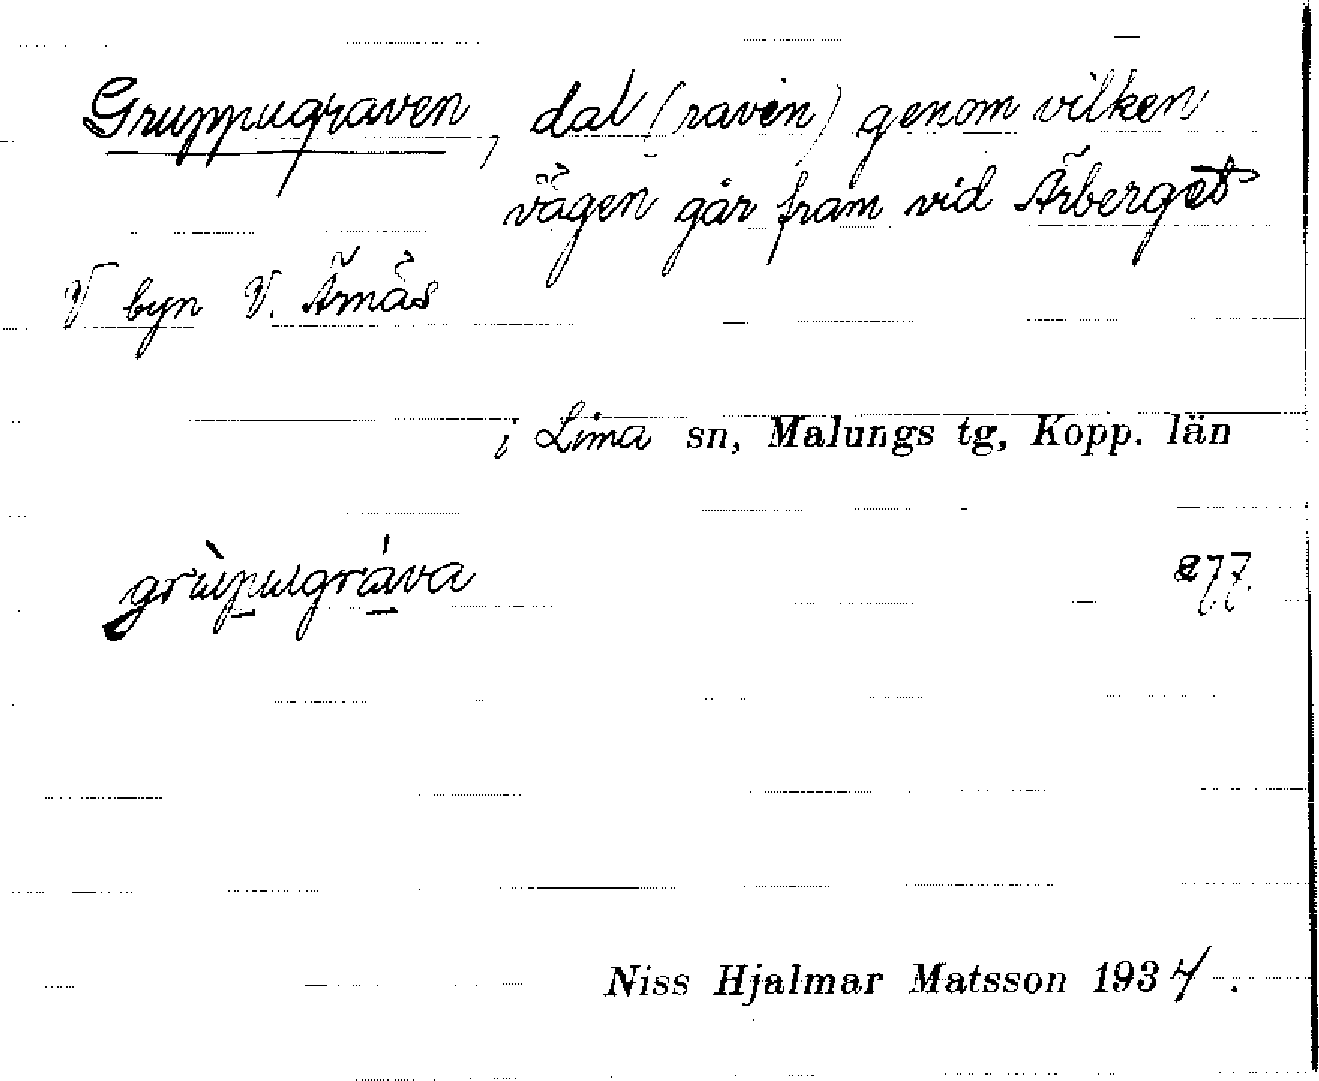 Gruppugraven, dal (ravin) genom vilken
vägen går fram vid Ärberget
V byn V. Ärnäs
i Lima sn, Malungs tg, Kopp. län
grùpugráva
277.
Niss Hjalmar Matsson 1934.